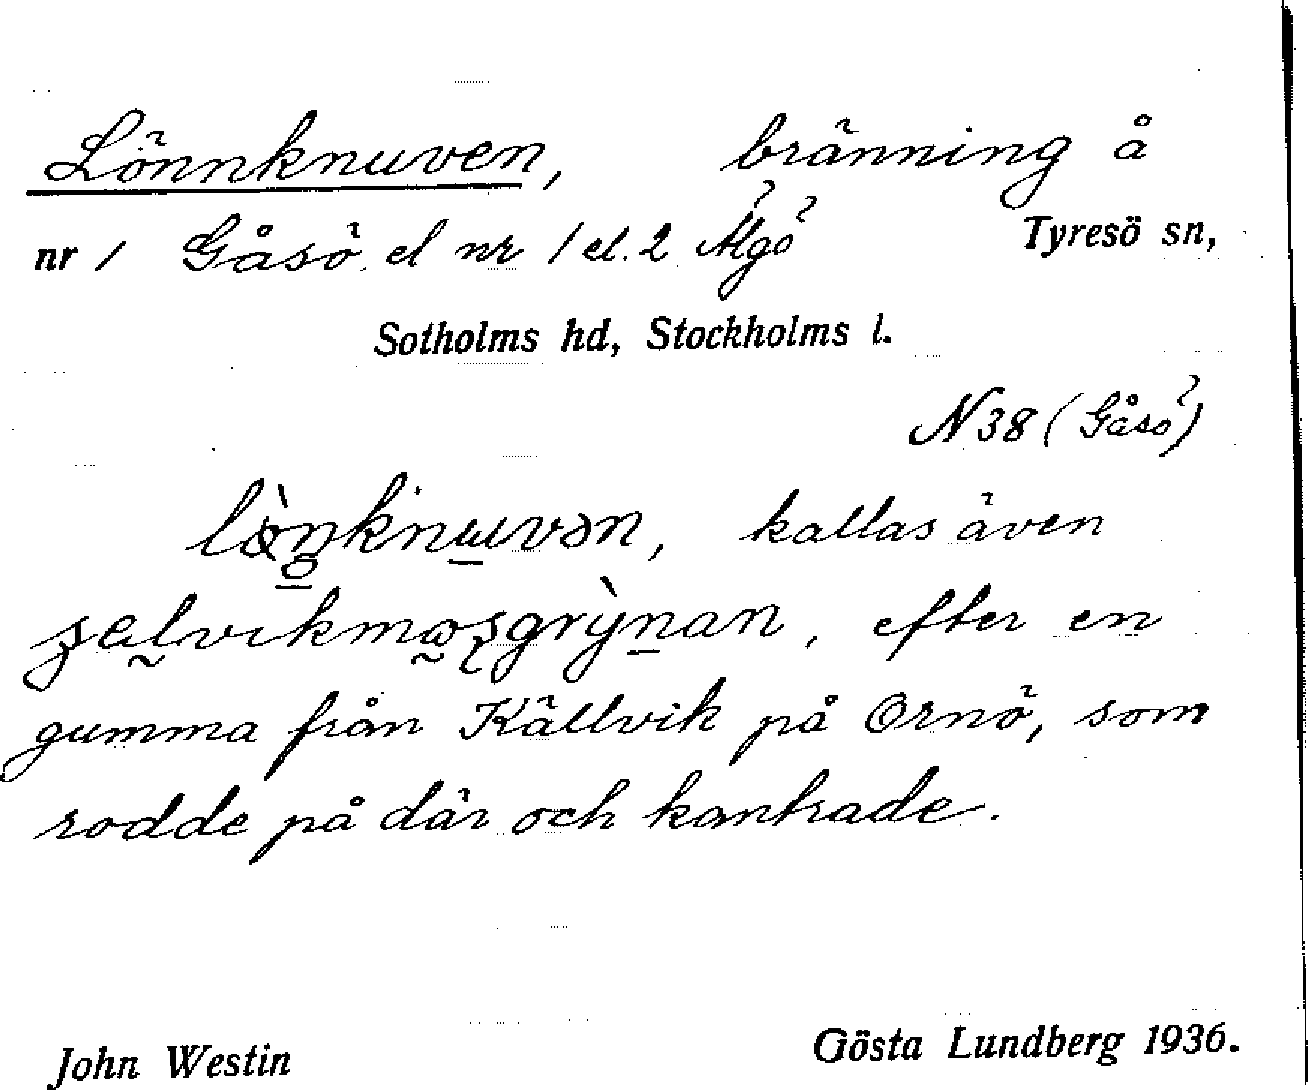 Lönnknuven, bränning å
nr 1 Gåsö el nr 1 el. 2 Älgö Tyresö sn,
Sotholms hd, Stockholms l.
N38 (Gåsö)
kallas även
efter en
gumma från Källvik på Ornö, som
rodde på där och kantrade.
John Westin Gösta Lundberg 1936.